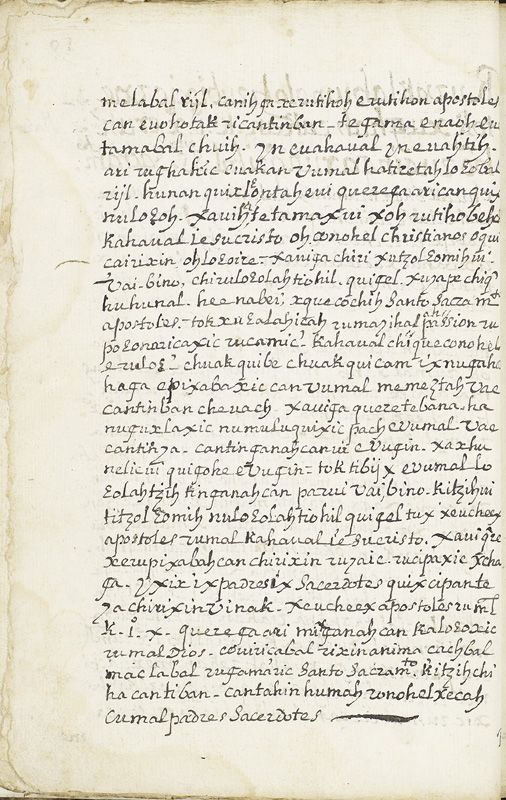 melabal rijl. canihga xerutihoh erutihon apostoles
can evohotak ricantinban - tegama enaoh eu
tamabal chuih. yn evahaual yn evahtih.
ari rughakic evakan vumal hatizetahloɛobal
rijl. hunan quixlontah evi querega aricanquix
nuloɛoh. xavihtetamaxui xoh rutihobeha
Kahaual Jesucristo oh conohel christianos oqui
cairixin ohloɛoire - xaviga chiri xutzolɛomihui
Vai bino, chiruloɛolahtiohil. quigel. xuyaxe chiqe
huhunal. hee nabei xquecochih santo sacramto
apostoles. - tok xuɛalahizah rumazihal passion ru
poɛonazicaxic rucamic. Kahaual chiqueconohel
eruloɛ. chuak quibe chuak quicam ix nugahe
haga epixabaxic can vumal memeztah vae
cantinban chevach. xaviga queretebana. ha
nuguxlaxic numuluquixic pach evumal. vae
cantihya. cantinganahcanui evugin. xaxhu
nelicui quigohe evugin - tok tibijx evumal lo
ɛolahtzih tinganahcan parui vaibino. kitzihui
titzolɛomih nuloɛolahtiohil quigel tux xeucheex
apostoles rumal Kahaual Jesucristo. xavi qre
xerupixabahcan chirixin ruzaic. rucipaxic xcha
ga. y xix ix padres ix sacerdotes quixcipante
ya chirixin vinak. xeucheex apostoles ruml
k. i. x. querega ari mixganahcan kaloɛoxic
rumal Dios. couiricabal rixin anima cachbal
mac labal rugamaric santo sacramto. kitzihchi
ha cantiban - cantahin humah ronohel xecah
cumal padres sacerdotes